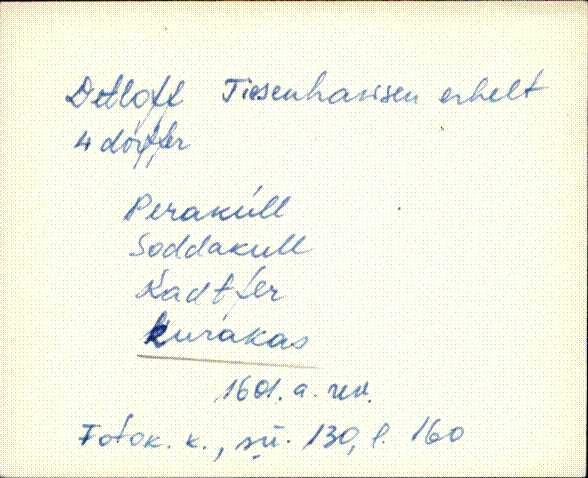 Detloff Tiesenhausen erhelt
4 dörffer
Peraküll
Soddaküll
Kadtfer
Kurakas
1601. a. rev.
Fotok. k., sü. 130, l. 160